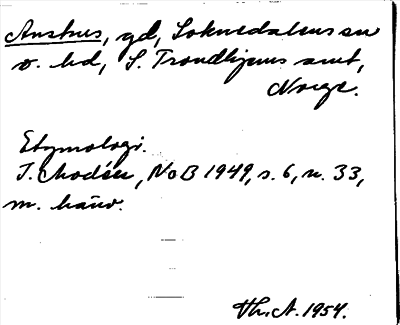 Austnes, gd, Soknedalens sn
o. hd, S. Trondhjems amt,
Norge.
Etymologi.
T. Modéer, NoB 1949, s. 6, n. 33,
m. hänv.
Th. A. 1954.